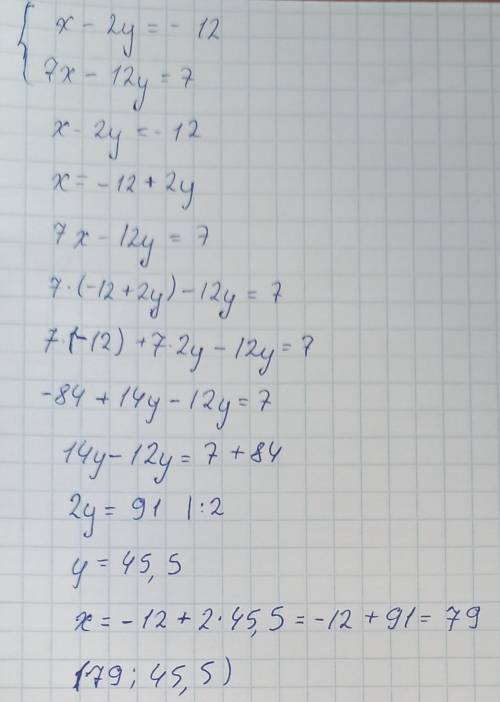 x - 2y = - 12
7x - 12y = 7
x - 2y = - 12
x = - 12 + 2y
7x - 12y = 7
7·(-12 + 2y) - 12y = 7
7·(-12) + 7·2y - 12y = 7
-84 + 14y - 12y = 7
14y - 12y = 7 + 84
2y = 91 |:2
y = 45,5
x = - 12 + 2·45,5 = -12 + 91 = 79
(79; 45,5)